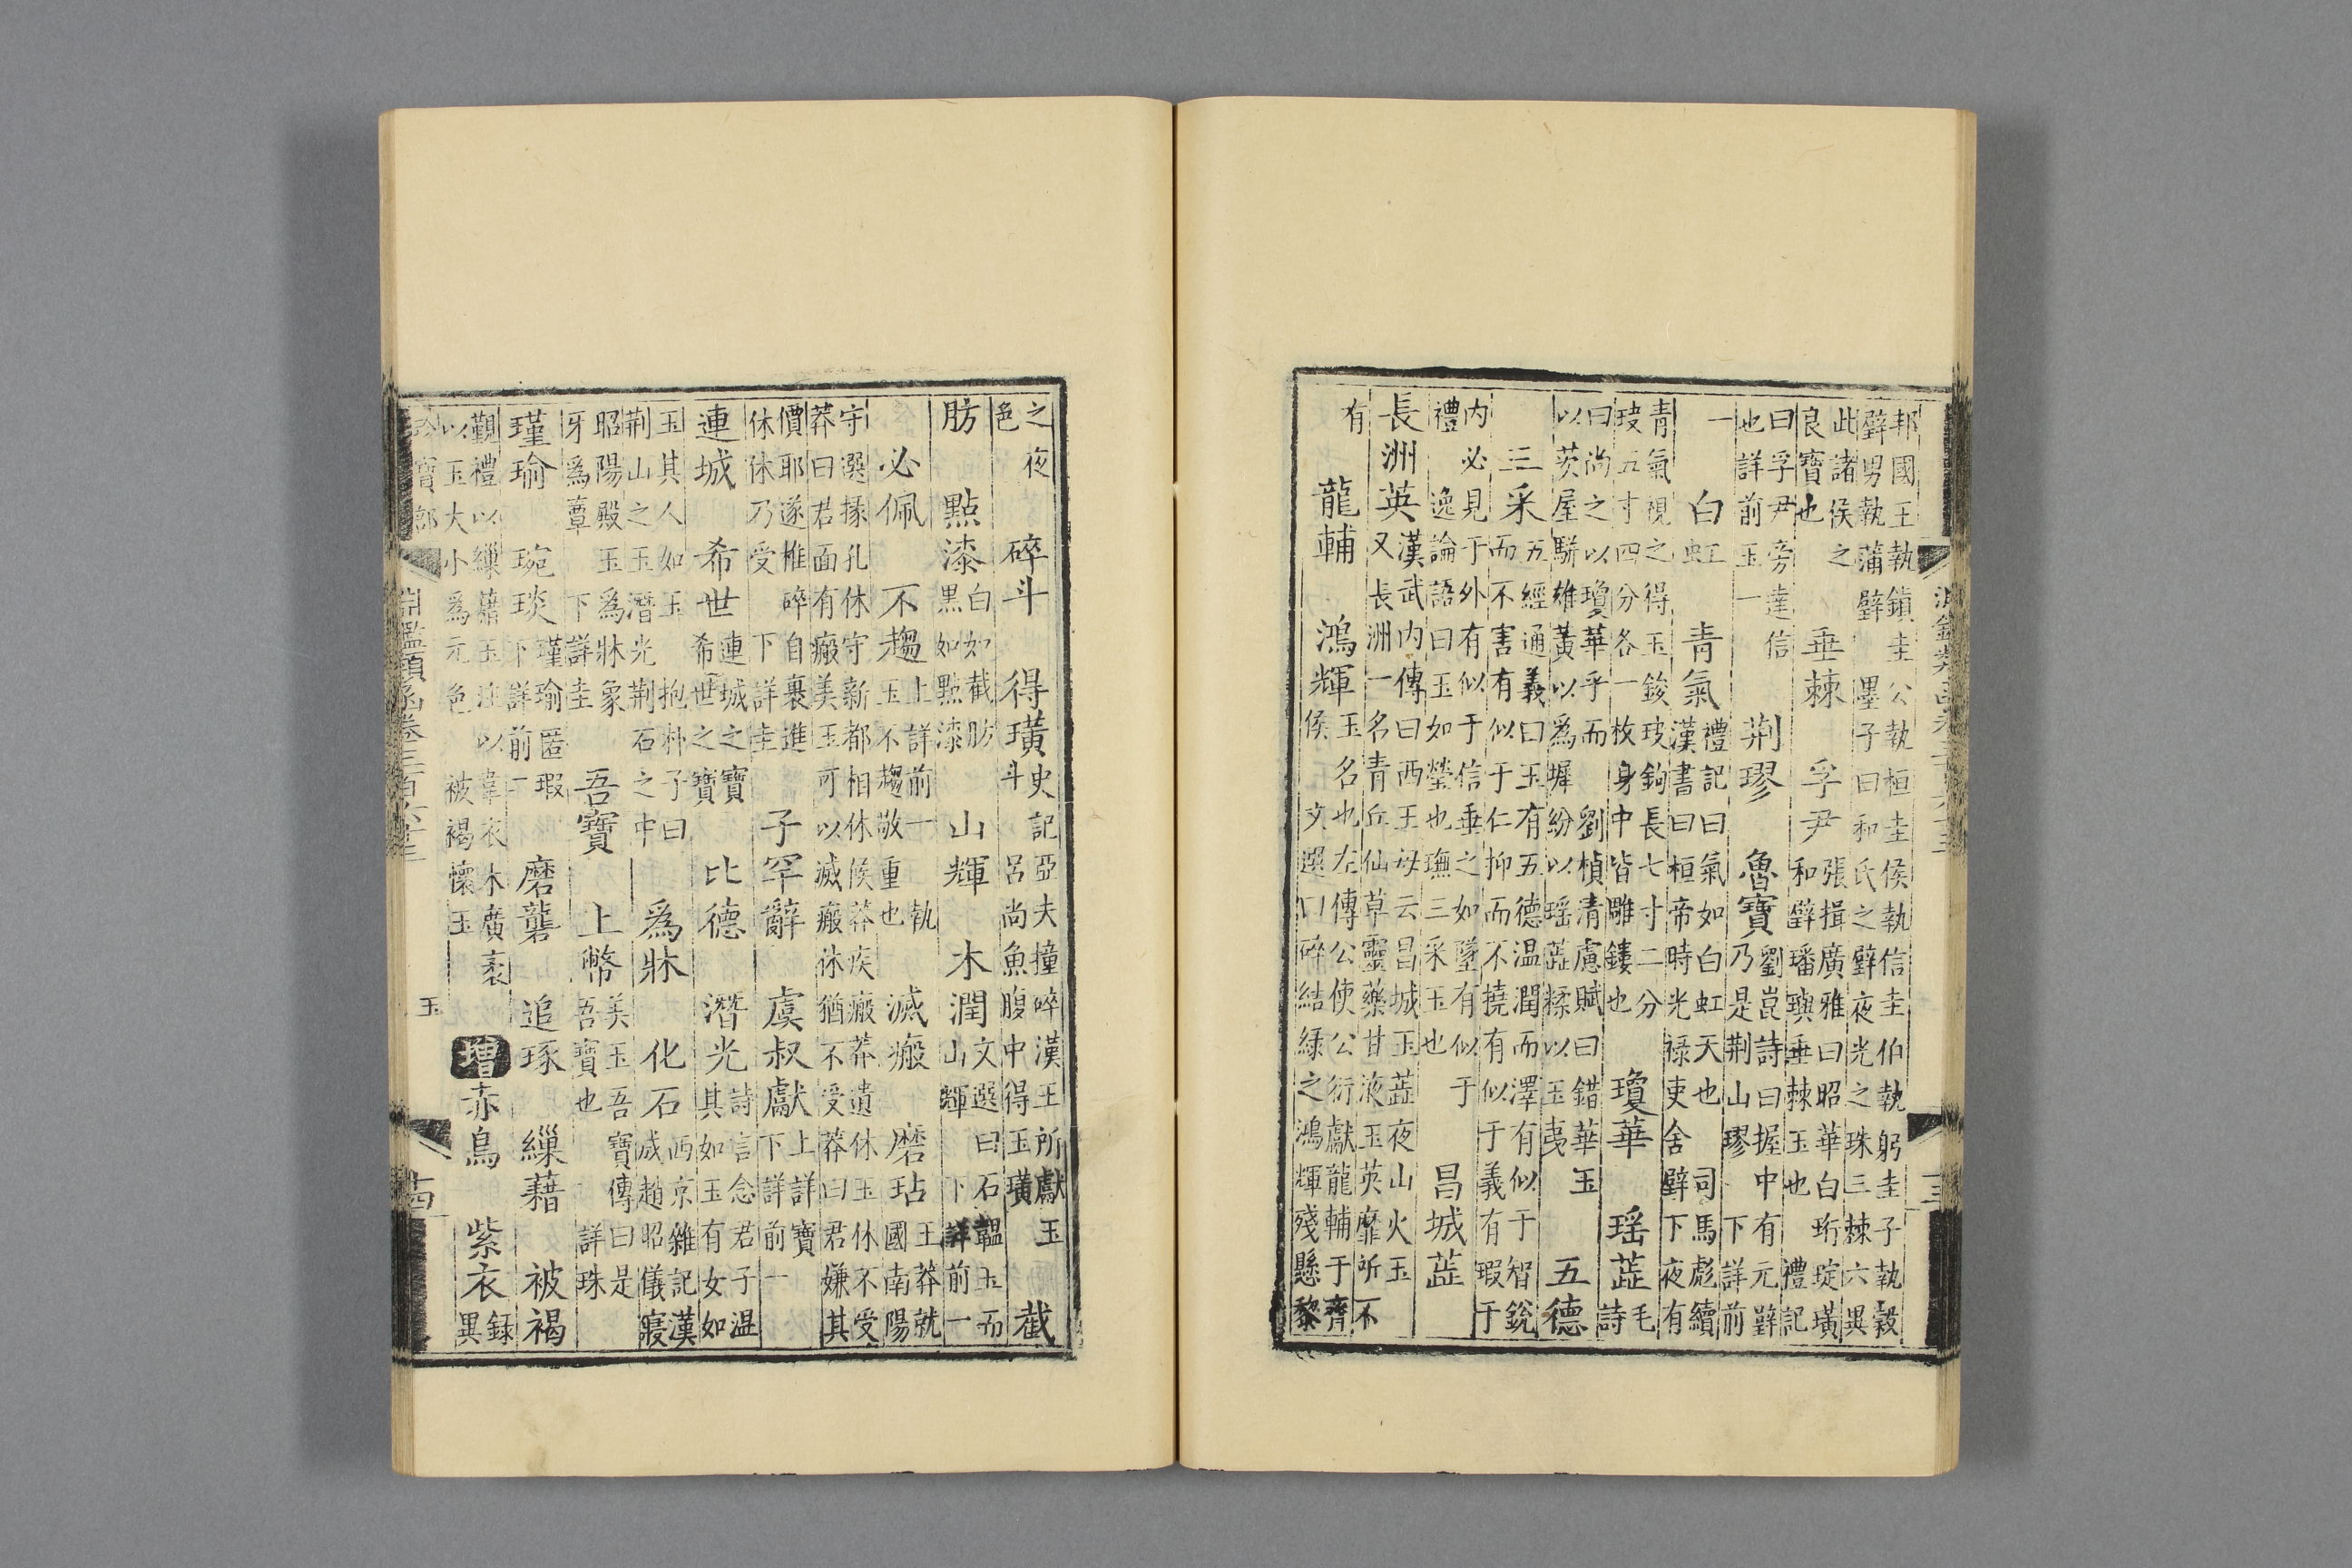 邦國王執鎮圭公執桓圭侯執信圭伯執躬圭子執穀
璧男執蒲璧 墨子曰和氏之璧夜光之珠三棘六異
此諸侯之
良寶也 垂棘 孚尹 張揖廣雅曰昭華白珩琁璜
和璧璠璵垂棘玉也 禮記
曰孚尹旁達信
也詳前玉一 荆璆 魯寶 劉崑詩曰握中有元璧
乃是荆山璆 下詳前
一 白虹 青氣 禮記曰氣如白虹天也 司馬彪續
漢書曰桓帝時光祿吏舍壁下夜有
青氣視之得玉鋑玦鉤長七寸二分
玦五寸四分各一枚身中皆雕鏤也 瓊華 瑶蕋 毛
詩
曰尚之以瓊華乎而 劉楨清慮賦曰錯華玉
以茨屋駢雄黃以爲墀紛以瑶蕋糅以玉夷 五德
三采 五經通義曰玉有五德温潤而澤有似于智銳
而不害有似于仁抑而不撓有似于義有瑕于
内必見于外有似于信垂之如墜有似于
禮 逸論語曰玉如瑩也璑三采玉也 昌城蕋
長洲英 漢武内傳曰西王母云昌城玉蕋夜山火玉
又長洲一名青丘仙草靈藥甘液玉英靡所不
有 龍輔 鴻輝 玉名也左傳公使公衍獻龍輔于齊
侯 文選曰碎結綠之鴻輝殘懸黎
之夜
色 碎斗 得璜 史記亞夫撞碎漢王所獻玉
斗 呂尚魚腹中得玉璜 截
肪 點漆 白如截肪
黑如點漆 山輝 木潤 文選曰石韞玉而
山輝 下詳前一
必佩 不趨 上詳前一 執
玉不趨敬重也 滅瘢 磨玷 王莽就
國南陽
守選掾孔休守新都相休候莽疾瘢莽遺休玉休不受
莽曰君面有瘢美玉可以滅瘢休猶不受莽曰君嫌其
價耶遂椎碎自裹進
休休乃受 下詳圭 子罕辭 虞叔獻 上詳寶
下詳前一
連城 希世 連城之寶
希世之寶 比德 潛光 詩言念君子温
其如玉有女如
玉其人如玉 抱朴子曰
荆山之玉潛光荆石之中 爲牀 化石 西京雜記漢
成趙昭儀寢
昭陽殿玉爲牀象
牙爲蕈 下詳圭 吾寶 上幣 美玉吾寶傳曰是
吾寶也 詳珠
瑾瑜 琬琰 瑾瑜匿瑕
下詳前一 磨礱 追琢 繅藉 被褐
觀禮以繅藉玉注以韋衣木廣袤
以玉大小爲元色 被褐懷玉 增 赤烏 紫衣 録
異
珍寶部 淵鑑類函卷三百六十三 玉 十四